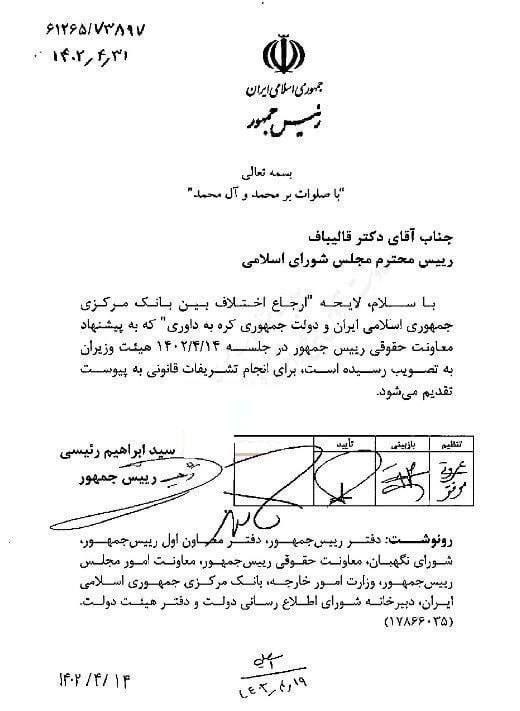 ۶۱۲۶۵/۷۳۸۹۷
۱۴۰۲/۴/۳۱
جمهوری اسلامی ایران
رئیس جمهور
بسمه تعالی
"با صلوات بر محمد و آل محمد"
جناب آقای دکتر قالیباف
رییس محترم مجلس شورای اسلامی
با سلام، لایحه "ارجاع اختلاف بین بانک مرکزی
جمهوری اسلامی ایران و دولت جمهوری کره به داوری" که به پیشنهاد
معاونت حقوقی رییس جمهور در جلسه ۱۴۰۲/۴/۱۴ هیئت وزیران
به تصویب رسیده است، برای انجام تشریفات قانونی به پیوست
تقدیم می‌شود.
سید ابراهیم رئیسی
رییس جمهور
تنظیم بازبینی تأیید
رونوشت: دفتر رییس‌جمهور، دفتر معاون اول رییس‌جمهور،
شورای نگهبان، معاونت حقوقی رییس‌جمهور، معاونت امور مجلس
رییس‌جمهور، وزارت امور خارجه، بانک مرکزی جمهوری اسلامی
ایران، دبیرخانه شورای اطلاع رسانی دولت و دفتر هیئت دولت.
(۱۷۸۶۶۰۳۵)
۱۴۰۲/۴/۱۴